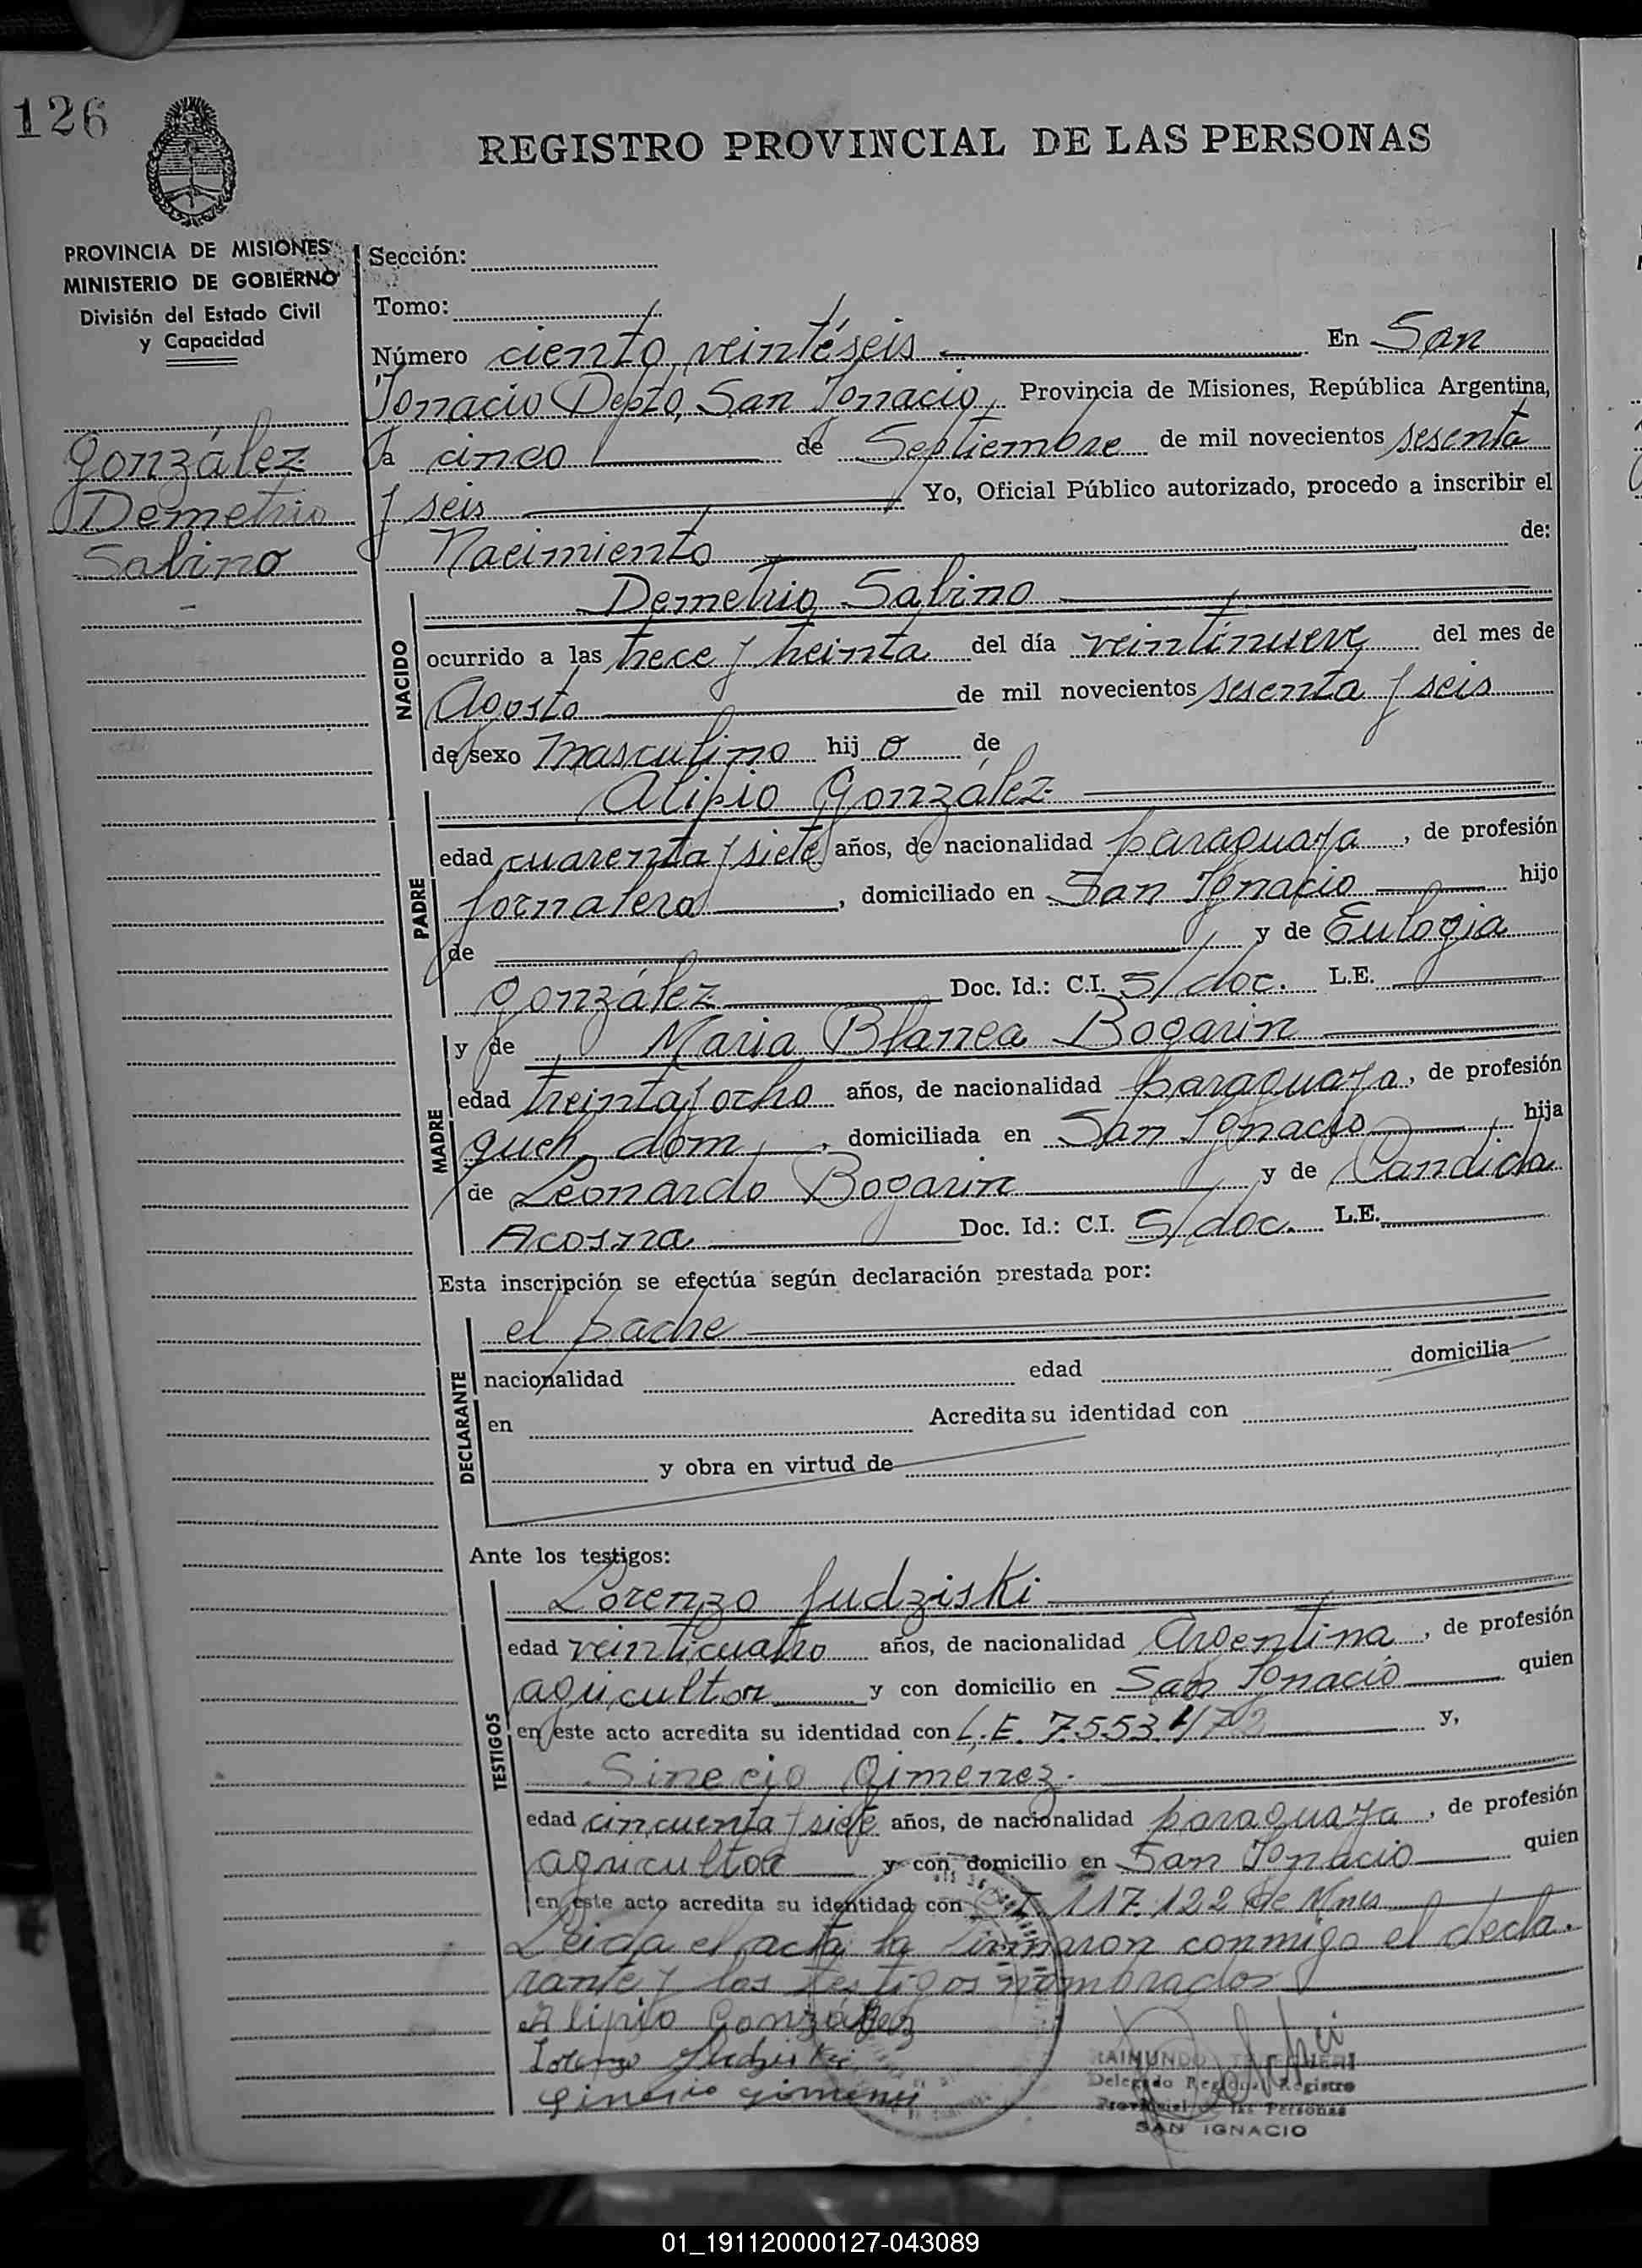 126
REGISTRO PROVINCIAL DE LAS PERSONAS
PROVINCIA DE MISIONES
MINISTERIO DE GOBIERNO
División del Estado Civil
y Capacidad
González
Demetrio
Sabino
Sección:
Tomo:
Número ciento veintéseis En San
Ignacio Depto, San Ignacio, Provincia de Misiones, República Argentina,
a cinco de Septiembre de mil novecientos sesenta
y seis Yo, Oficial Público autorizado, procedo a inscribir el
Nacimiento de:
NACIDO
Demetrio Sabino
ocurrido a las trece y treinta del día veintinueve del mes de
Agosto de mil novecientos sesenta y seis
de sexo masculino hij o de
PADRE
Alipio González
edad cuarenta y siete años, de nacionalidad paraguaya, de profesión
jornalero, domiciliado en San Ignacio hijo
de y de Eulogia
González Doc. Id.: C.I. S/doc. L.E.
MADRE
y de Maria Blanca Bogarin
edad treinta y ocho años, de nacionalidad paraguaya, de profesión
queh. dom., domiciliada en San Ignacio hija
de Leonardo Bogarin y de Candida
Acosta Doc. Id.: C.I. S/doc. L.E.
Esta inscripción se efectúa según declaración prestada por:
DECLARANTE
el padre
nacionalidad edad domicilia
en Acredita su identidad con
y obra en virtud de
Ante los testigos:
TESTIGOS
Lorenzo Judziski
edad veinticuatro años, de nacionalidad Argentina, de profesión
agricultor y con domicilio en San Ignacio quien
en este acto acredita su identidad con L.E. 7.553.472 y,
Sinecio Gimenez.
edad cincuenta y siete años, de nacionalidad paraguaya, de profesión
agricultor y con domicilio en San Ignacio quien
en este acto acredita su identidad con 117.122 de Mnes
Leida el acta la firmaron conmigo el decla-
rante y los testigos nombrados
Alipio González
Lorenzo Judziski
Sinecio Gimenez
RAIMUNDO
Delegado Regional Registro
Provincial de las Personas
SAN IGNACIO
01_191120000127-043089